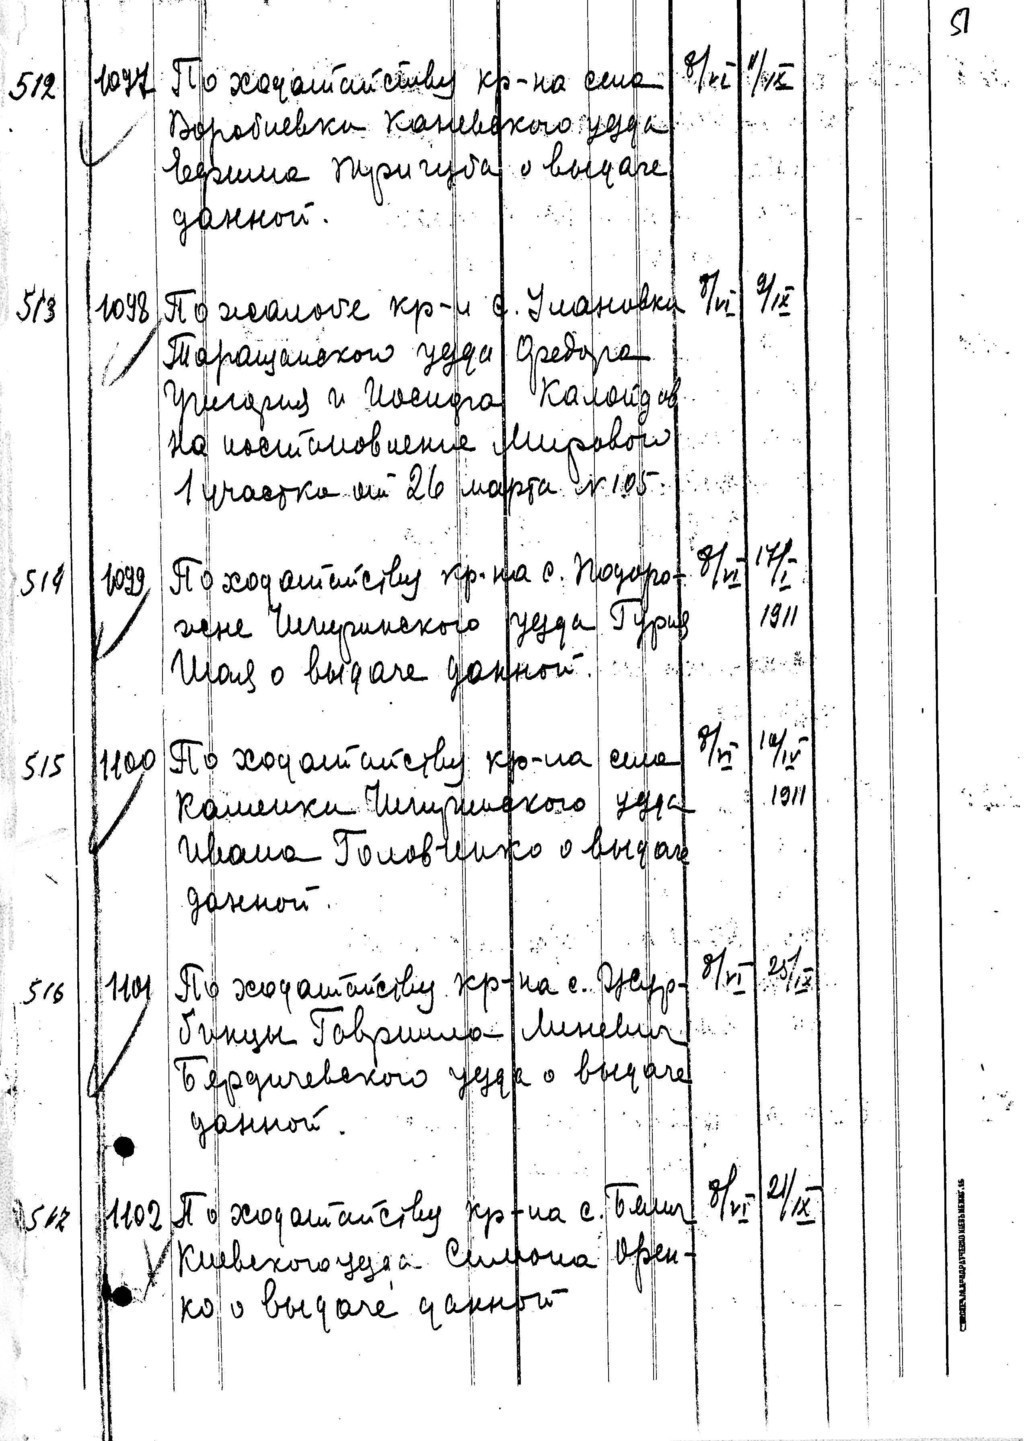 51
512 1097 По ходатайству кр-на села 8/VI 11/IX
Воробиевки Каневского уезда
Ефима Кригуба о выдаче
данной.
513 1098 По жалобе кр-н с. Улановки 8/VI 9/IX
Таращанского уезда Федора
Григория и Иосифа Калоидов
на постановление Мирового
1 участка от 26 марта № 105.
514 1099 По ходатайству кр-на с. Подоро- 8/VI 17/I
жне Чигиринского уезда Гурия 1911
Шая о выдаче данной.
515 1100 По ходатайству кр-на села 8/VI /IV
Каменки Чигиринского уезда 1911
Ивана Головченко о выдаче
данной.
516 1101 По ходатайству кр-на с. Джур- 8/VI 25/IX
бинцы Гавриила Миневич
Бердичевского уезда о выдаче
данной.
517 1102 По ходатайству кр-на с. 8/VI 21/IX
Киевского уезда Симона Орен-
ко о выдаче данной